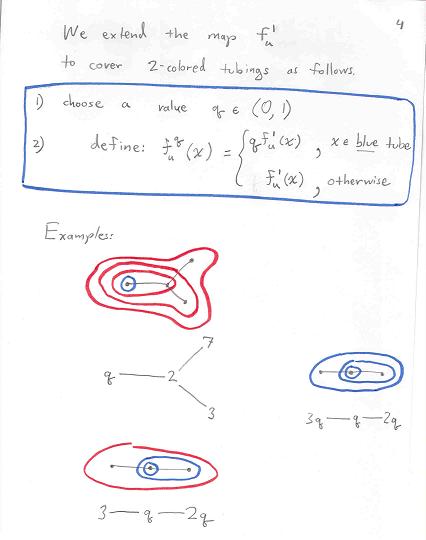 4
We extend the map f'ᵤ
to cover 2-colored tubings as follows.
1) choose a value q ∈ (0, 1)
2) define: fᵤ^q(x) = { q f'ᵤ(x) , x ∈ blue tube
f'ᵤ(x) , otherwise
Examples:
7
q — 2
3
3q — q — 2q
3 — q — 2q